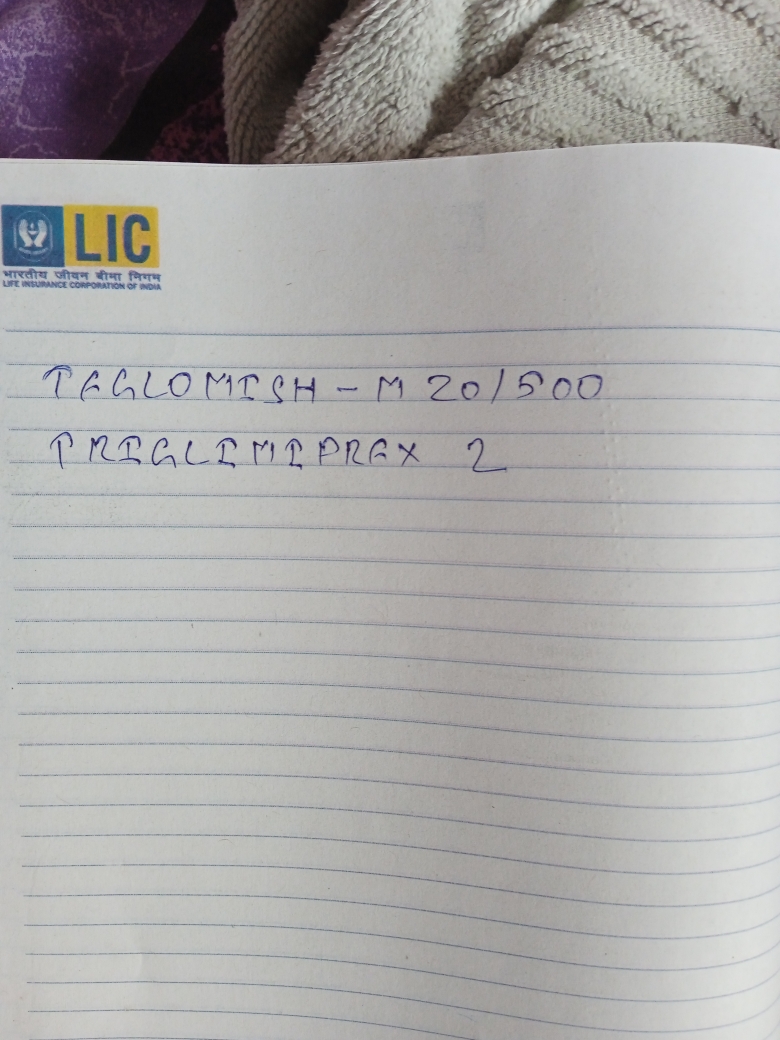 LIC
भारतीय जीवन बीमा निगम
LIFE INSURANCE CORPORATION OF INDIA
TEGLOMISH - M 20/500
TRIGLIMIPREX 2